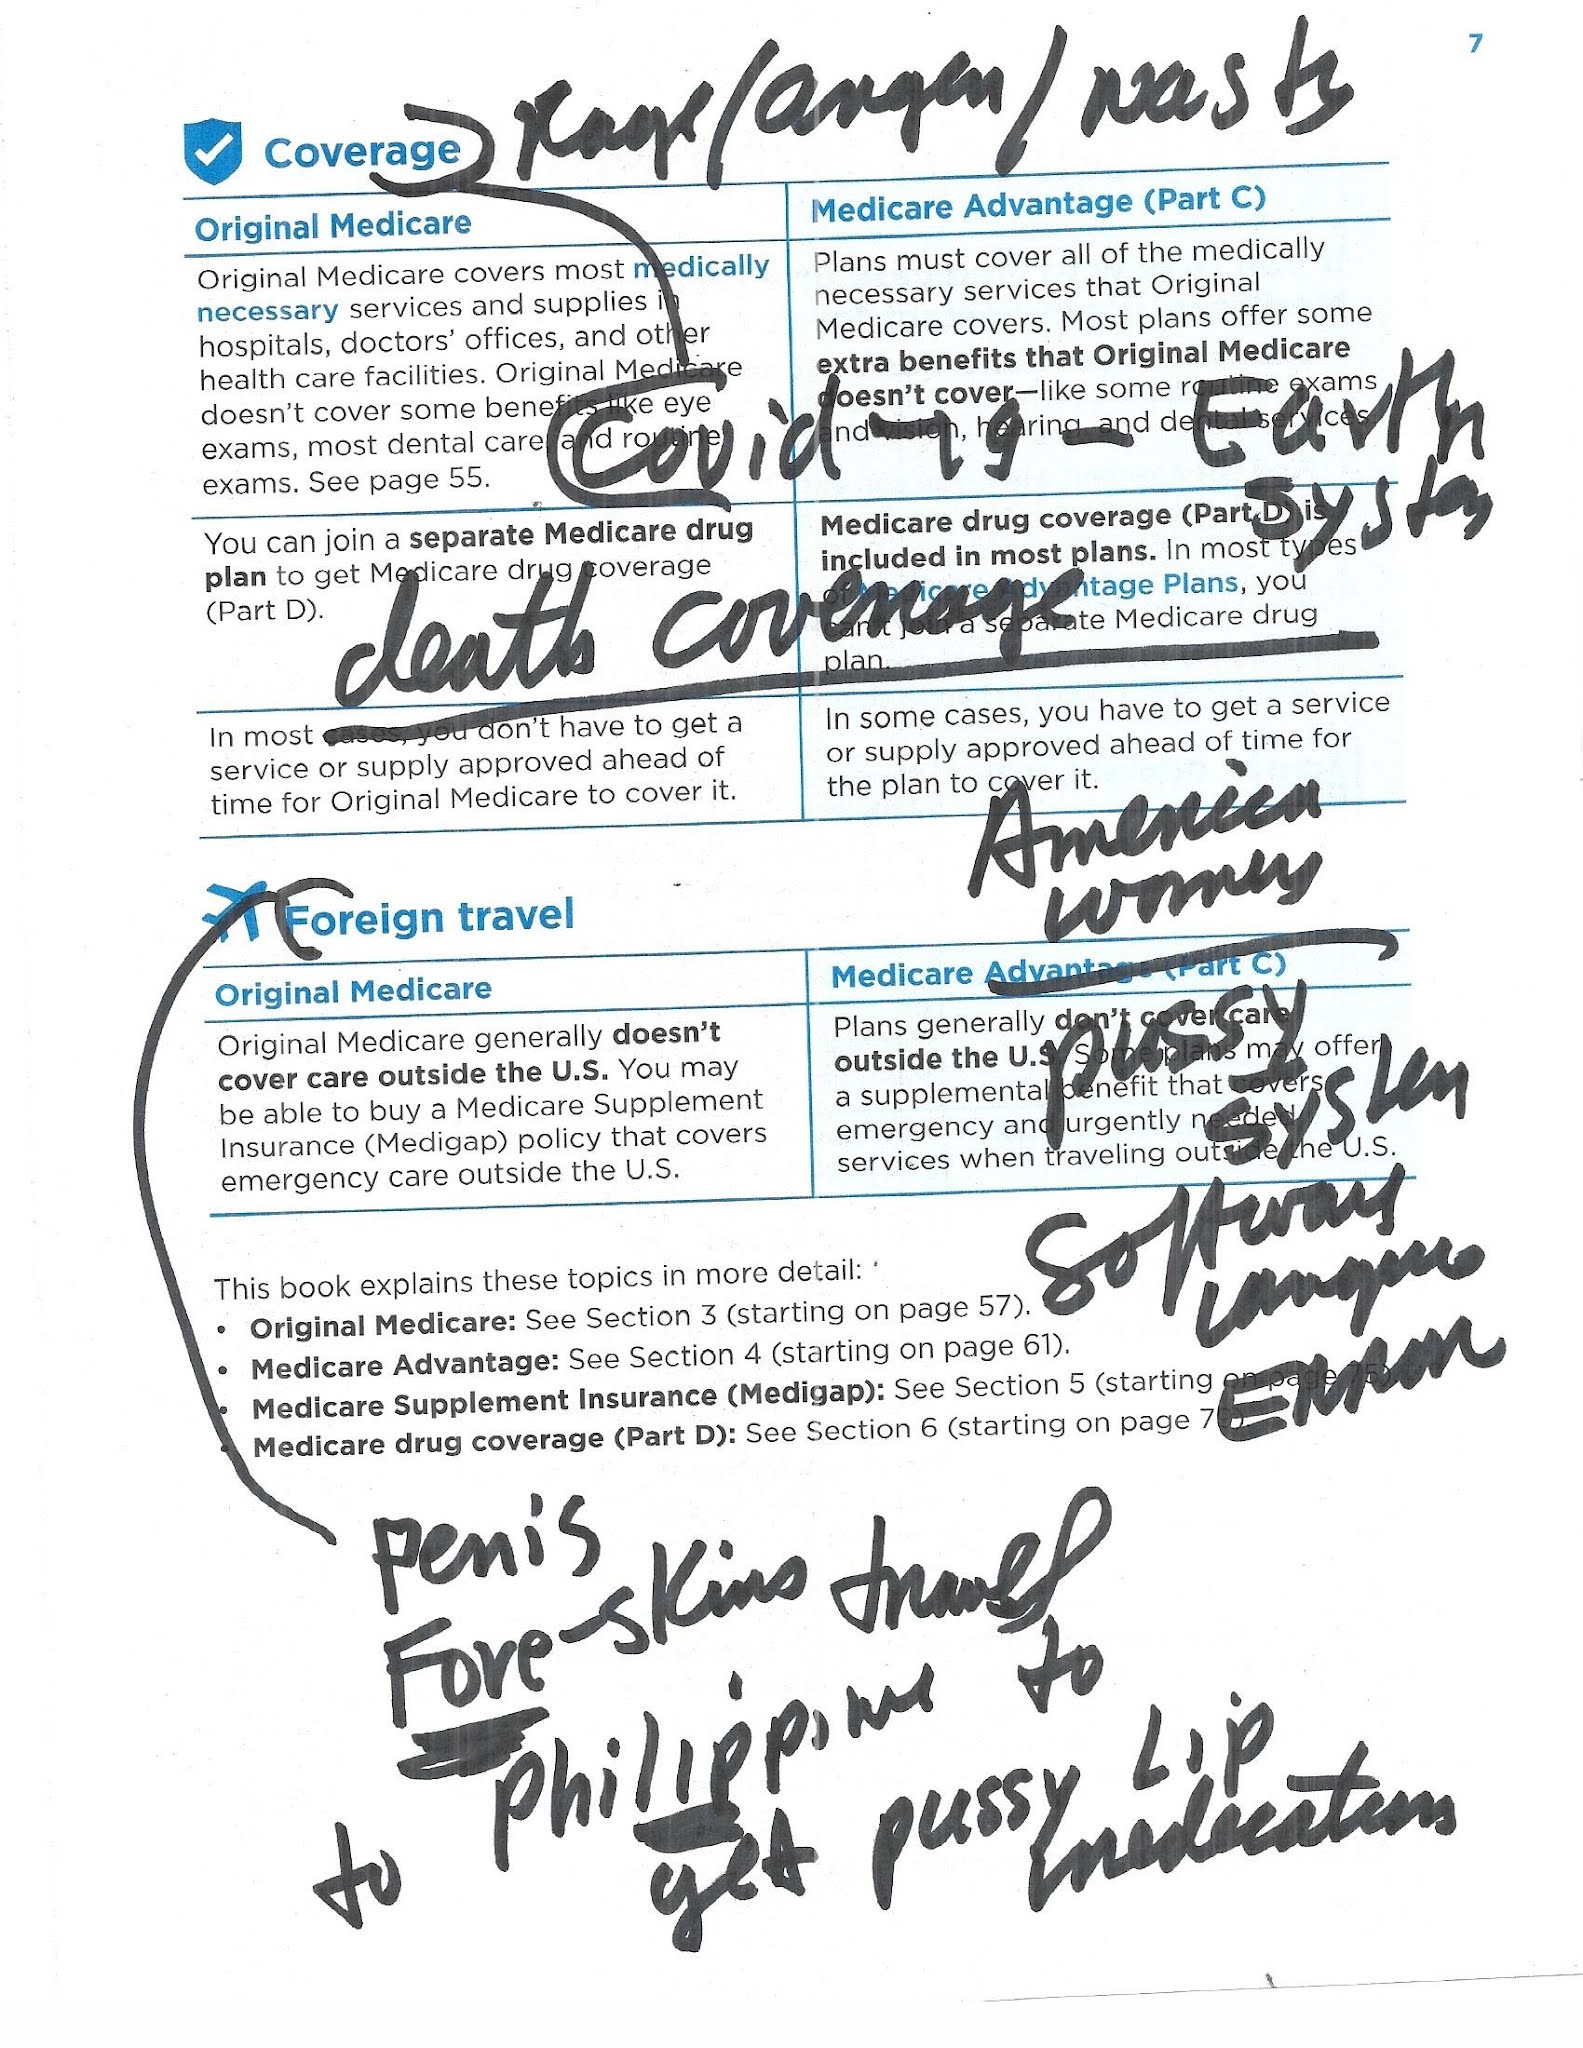 7
Rage/anger/wasts
Coverage
Original Medicare
Medicare Advantage (Part C)
Original Medicare covers most medically
necessary services and supplies in
hospitals, doctors' offices, and other
health care facilities. Original Medicare
doesn't cover some benefits like eye
exams, most dental care, and routine
exams. See page 55.
Plans must cover all of the medically
necessary services that Original
Medicare covers. Most plans offer some
extra benefits that Original Medicare
doesn't cover—like some routine exams
and vision, hearing, and dental services.
Covid-19-Earth
System
You can join a separate Medicare drug
plan to get Medicare drug coverage
(Part D).
Medicare drug coverage (Part D) is
included in most plans. In most types
of Medicare Advantage Plans, you
can't join a separate Medicare drug
plan.
death coverage
In most cases, you don't have to get a
service or supply approved ahead of
time for Original Medicare to cover it.
In some cases, you have to get a service
or supply approved ahead of time for
the plan to cover it.
America
women
Foreign travel
Original Medicare
Medicare Advantage (Part C)
Original Medicare generally doesn't
cover care outside the U.S. You may
be able to buy a Medicare Supplement
Insurance (Medigap) policy that covers
emergency care outside the U.S.
Plans generally don't cover care
outside the U.S. Some plans may offer
a supplemental benefit that covers
emergency and urgently needed
services when traveling outside the U.S.
pussy
system
Software
Error
This book explains these topics in more detail:
• Original Medicare: See Section 3 (starting on page 57).
• Medicare Advantage: See Section 4 (starting on page 61).
• Medicare Supplement Insurance (Medigap): See Section 5 (starting on page 75).
• Medicare drug coverage (Part D): See Section 6 (starting on page
penis
Fore-skins travel
to philippine to
get pussy Lip
medications